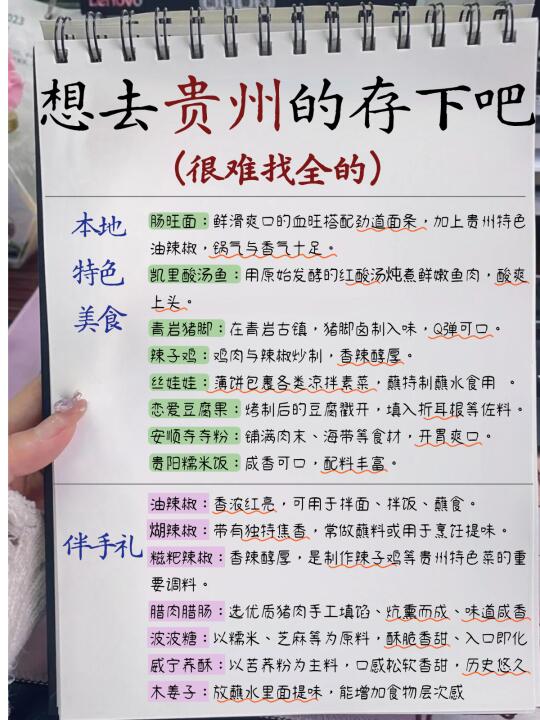 2023
Lenovo
想去贵州的存下吧
(很难找全的)
本地
特色
美食
肠旺面:鲜滑爽口的血旺搭配劲道面条,加上贵州特色
油辣椒,锅气与香气十足。
凯里酸汤鱼:用原始发酵的红酸汤炖煮鲜嫩鱼肉,酸爽
上头。
青岩猪脚:在青岩古镇,猪脚卤制入味,Q弹可口。
辣子鸡:鸡肉与辣椒炒制,香辣醇厚。
丝娃娃:薄饼包裹各类凉拌素菜,蘸特制蘸水食用 。
恋爱豆腐果:烤制后的豆腐戳开,填入折耳根等佐料。
安顺夺夺粉:铺满肉末、海带等食材,开胃爽口。
贵阳糯米饭:咸香可口,配料丰富。
伴手礼
油辣椒:香浓红亮,可用于拌面、拌饭、蘸食。
煳辣椒:带有独特焦香,常做蘸料或用于烹饪提味。
糍粑辣椒:香辣醇厚,是制作辣子鸡等贵州特色菜的重
要调料。
腊肉腊肠:选优质猪肉手工填馅、炕熏而成、味道咸香
波波糖:以糯米、芝麻等为原料,酥脆香甜、入口即化
威宁荞酥:以苦荞粉为主料,口感松软香甜,历史悠久
木姜子:放蘸水里面提味,能增加食物层次感